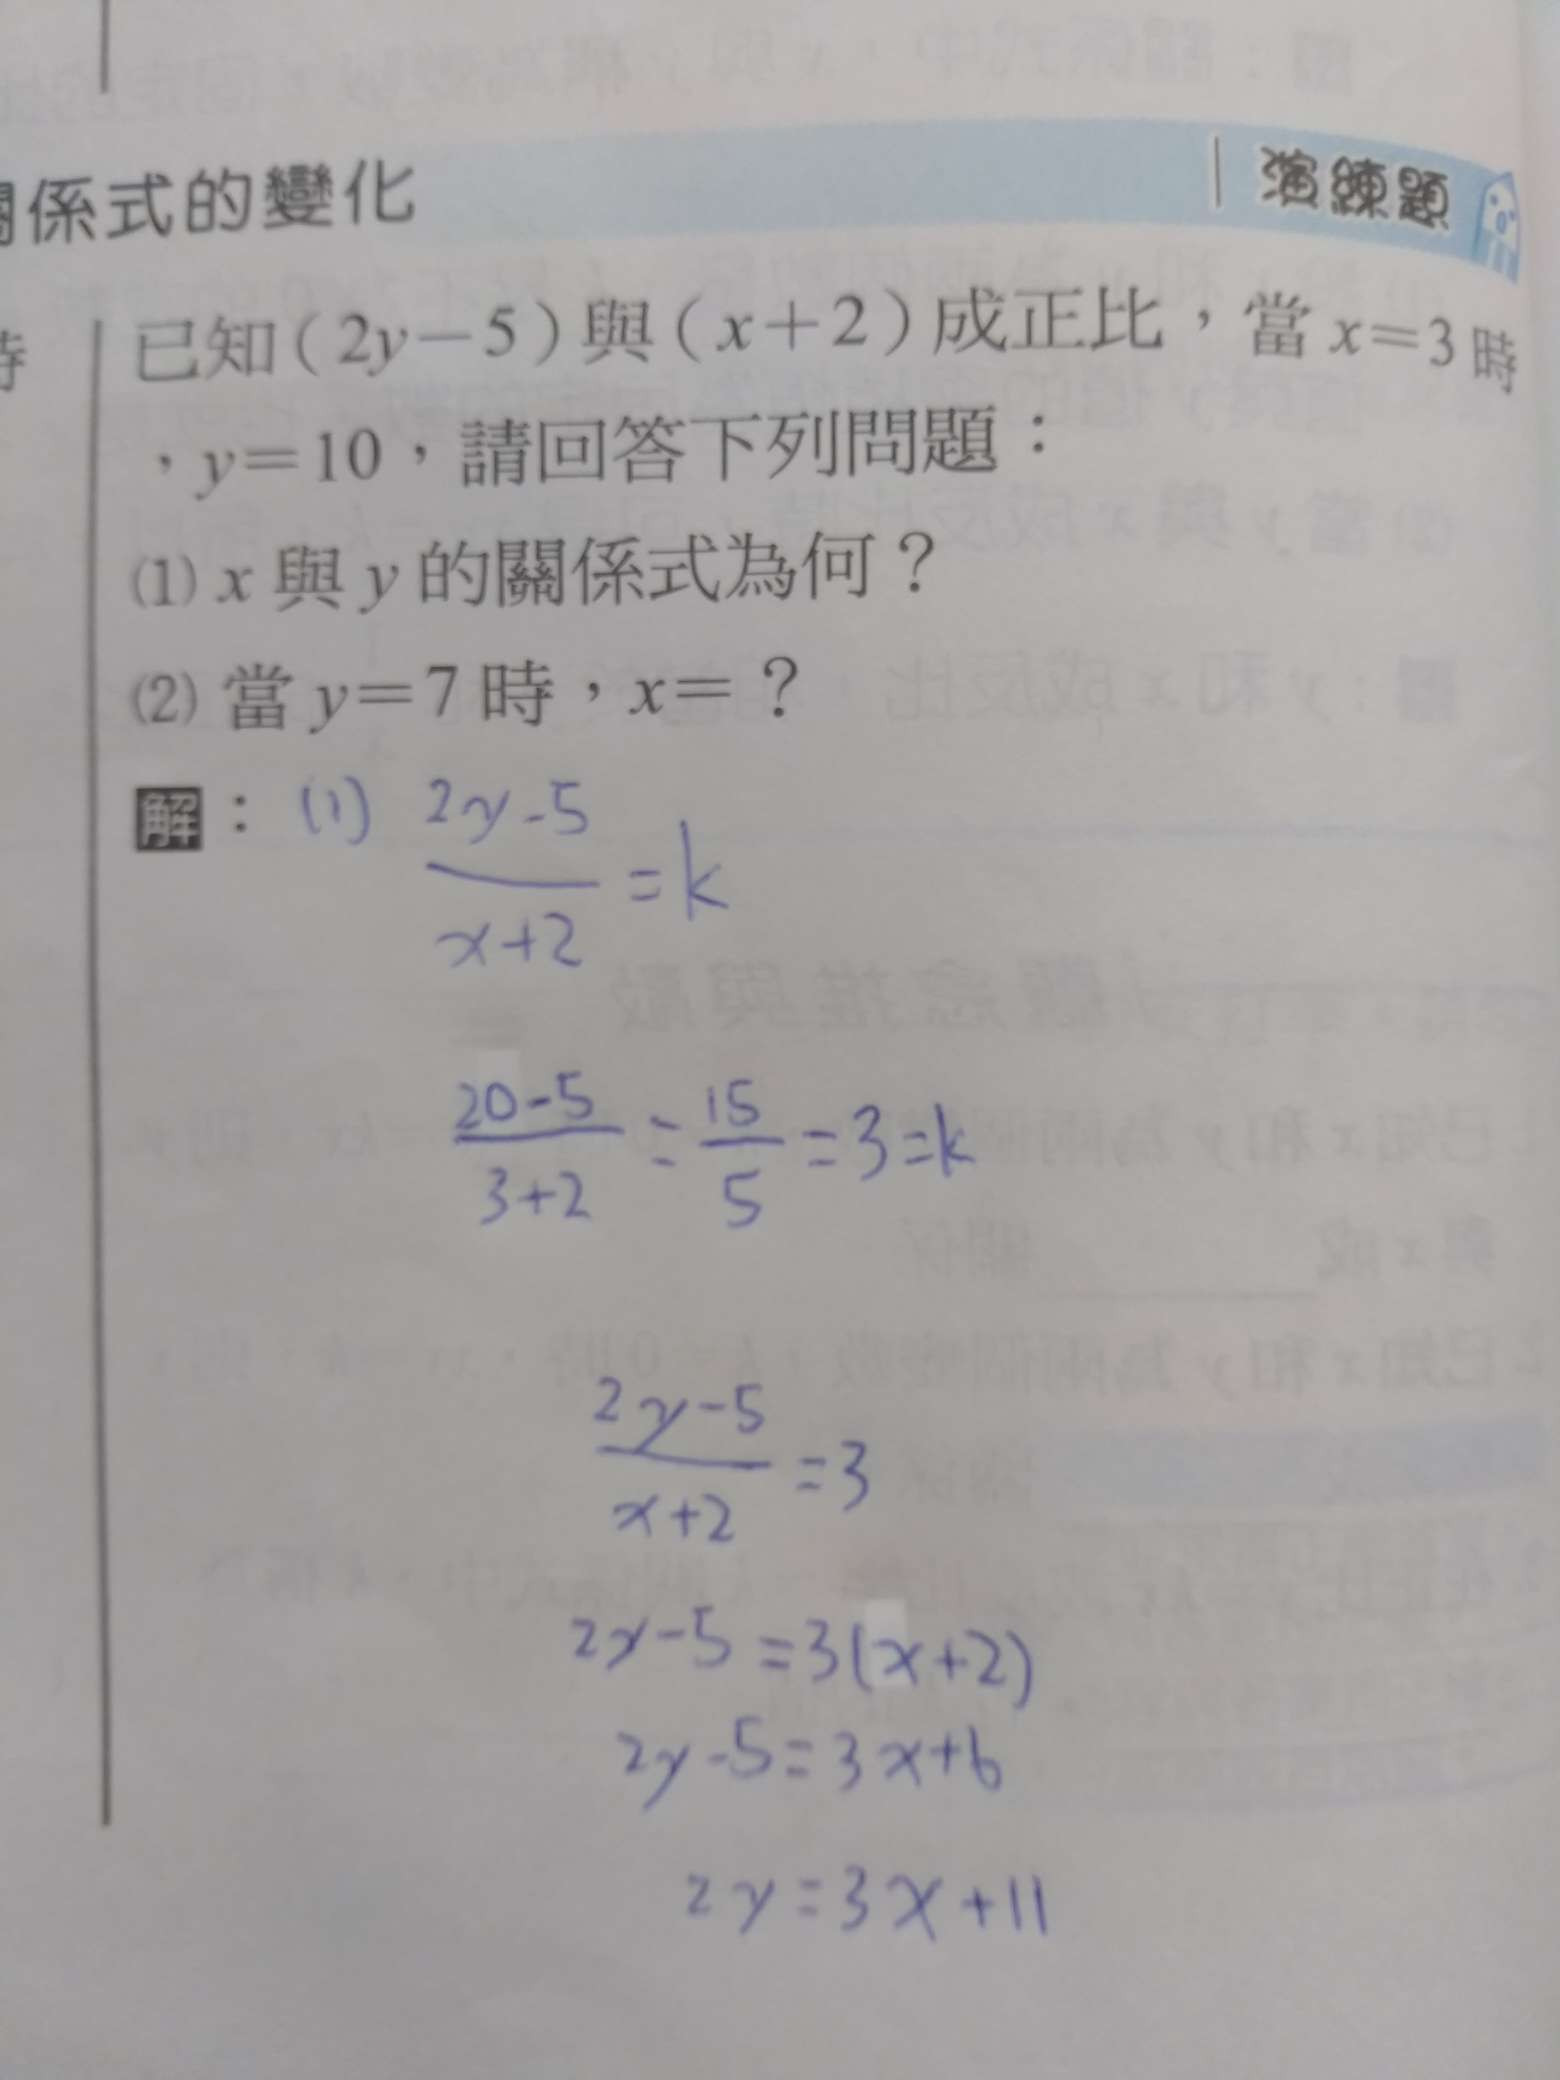 係式的變化
演練題
已知(2y-5)與(x+2)成正比,當x=3時
,y=10,請回答下列問題:
(1) x與y的關係式為何?
(2) 當y=7時,x=?
解:(1) \frac{2y-5}{x+2}=k
\frac{20-5}{3+2}=\frac{15}{5}=3=k
\frac{2y-5}{x+2}=3
2y-5=3(x+2)
2y-5=3x+6
2y=3x+11